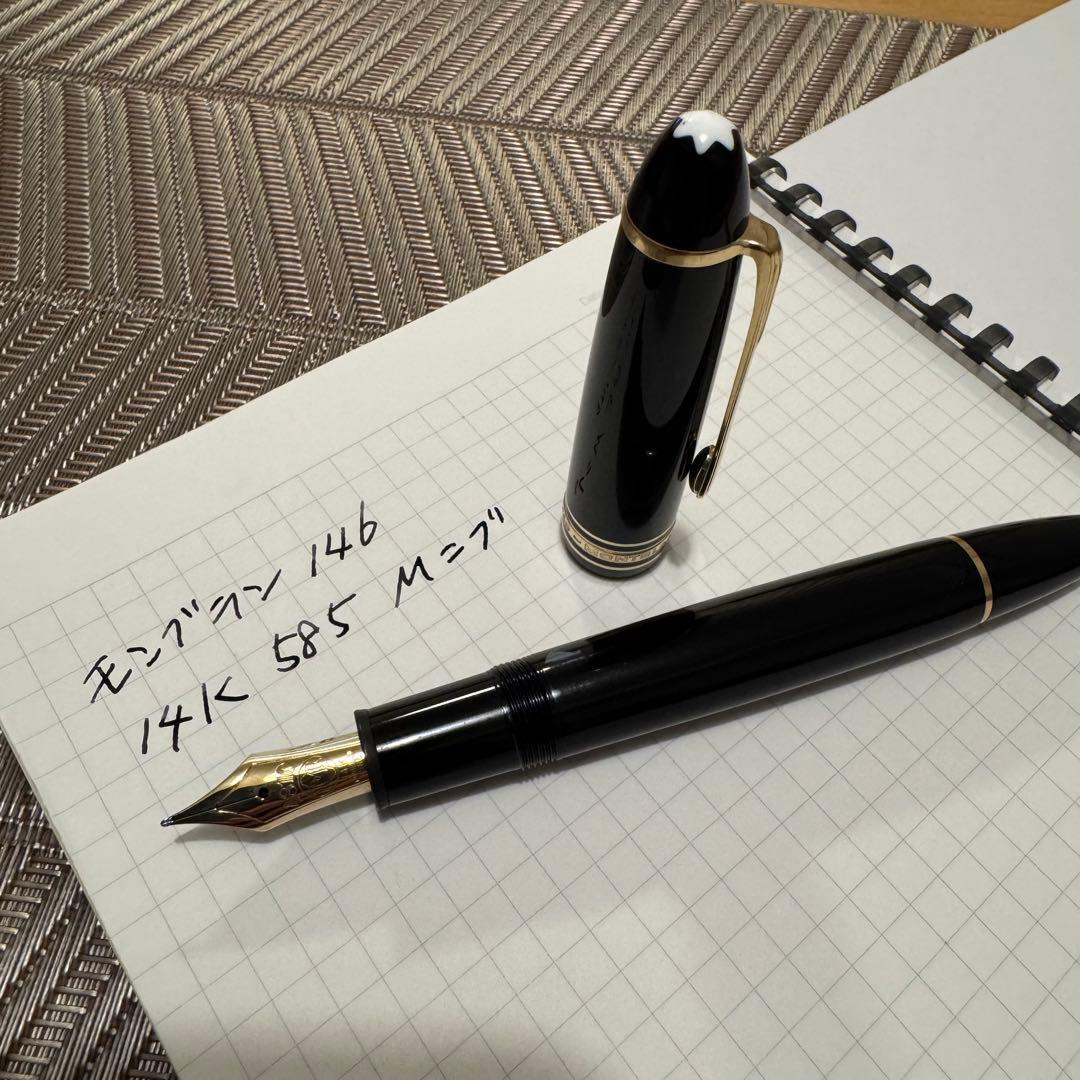 モンブラン 146
14K 585 Mニブ
MONTBL